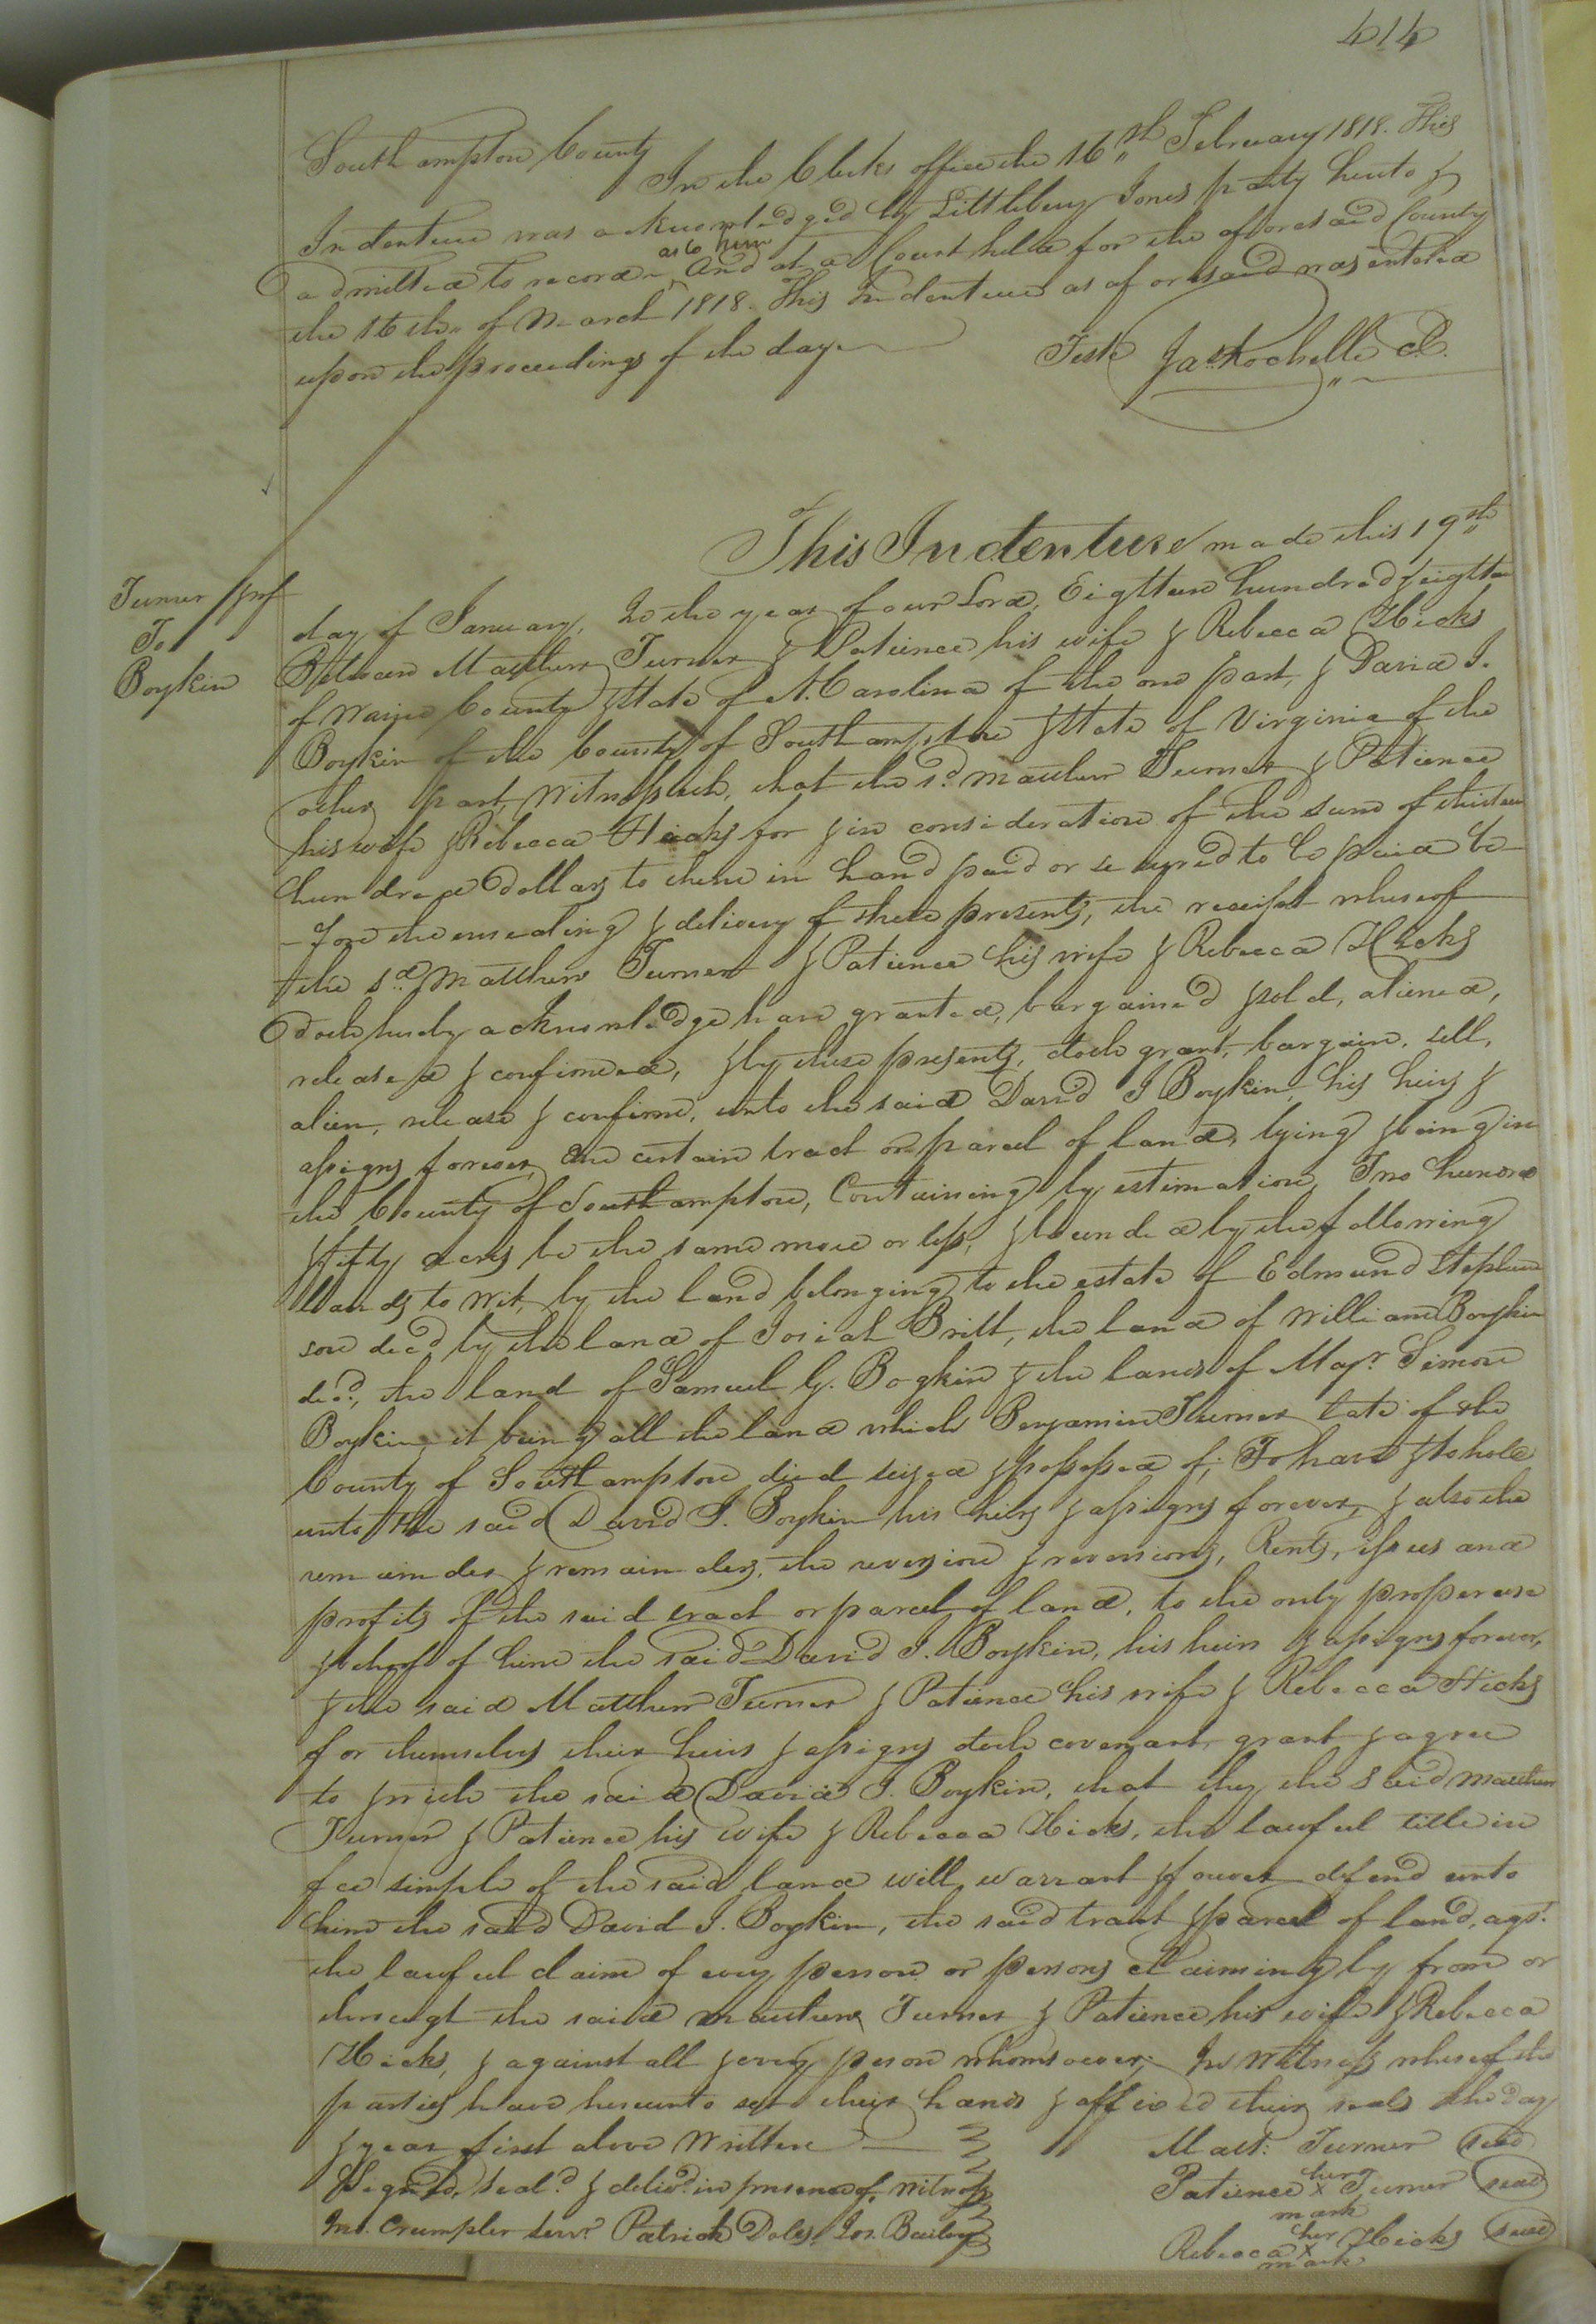 414
Southampton County
In the Clerks office the 16th February 1818. This
Indenture was acknowledged by Littlebury Jones party hereto &
as to him
admitted to record And at a Court held for the aforesaid County
the 16th of March 1818. This Indenture as aforesaid was entered
upon the proceedings of the day
Teste Jas Rochelle Cl.
This Indenture made this 19th
Turner &wf
To
Boykin
day of January, In the year of our Lord, Eightteen hundred & eightteen
Between Matthew Turner & Patience his wife & Rebecca Hicks
of Waine County & State of N. Carolina of the one part, & David J.
Boykin of the County of Southampton & State of Virginia of the
other part, Witnesseth, that the sd. Matthew Turner & Patience
his wife & Rebecca Hicks for & in consideration of the sum of thirteen
hundred dollars to them in hand paid or secured to be paid be-
-fore the ensealing & delivery of these presents, the receipt whereof
the sd. Matthew Turner & Patience his wife & Rebecca Hicks
doth hereby acknowledge have granted, bargained & sold, aliened,
released & confirmed, & by these presents, doth grant, bargain, sell,
alien, release & confirm, unto the said David J Boykin, his heirs &
assigns forever, One certain tract or parcel of land, lying & being in
the County of Southampton, Containing by estimation, Two hundred
& fifty acres be the same more or less, & bounded by the following
lands to wit, by the land belonging to the estate of Edmund Stephen
son decd by the land of Josiah Britt, the land of William Boykin
decd., the land of Samuel G. Boykin & the lands of Majr. Simon
Boykin, it being all the land which Benjamin Turner late of the
County of Southampton died seized & possessed of; To have & to hold
unto the said David J. Boykin his heirs & assigns forever, & also the
remainder & remainders, the reversion & reversions, Rents, issues and
profits of the said tract or parcel of land, to the only proper use
& behoof of him the said David J. Boykin, his heirs & assigns forever,
& the said Matthew Turner & Patience his wife & Rebecca Hicks
for themselves their heirs & assigns doth covenant, grant & agree
to & with the said David J. Boykin, that they the said Matthew
Turner & Patience his wife & Rebecca Hicks, the lawful title in
fee simple of the said land will warrant & forever defend unto
him the said David J. Boykin, the said tract & parcel of land, agst.
the lawful claim of every person or persons claiming by from or
through the said Matthew Turner & Patience his wife & Rebecca
Hicks, & against all & every person whomsoever; In Witness whereof the
parties have hereunto set their hands & affixed their seals the day
& year first above Written
Matt: Turner seal
Signed, seald. & delivd. in presence of, Witness
her
Patience x Turner seal
mark
Jno. Crumpler Patrick Doles, Jos. Bailey
her
Rebecca x Hicks seal
mark